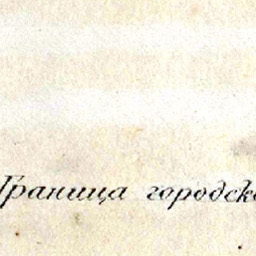 Граница городск